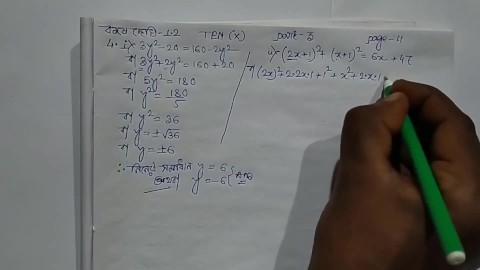 কষে দেখি-1.2 TEN (X) part-3 page-11
4. i> 3y²-20 = 160-2y²
বা 3y²+2y² = 160+20
বা 5y² = 180
বা y² = 180/5
বা y² = 36
বা y = ±√36
বা y = ±6
∴ নির্ণেয় সমাধান y = 6
অথবা y = -6 } Ans
ii> (2x+1)² + (x+1)² = 6x + 47
বা (2x)² + 2·2x·1 + 1² + x² + 2·x·1